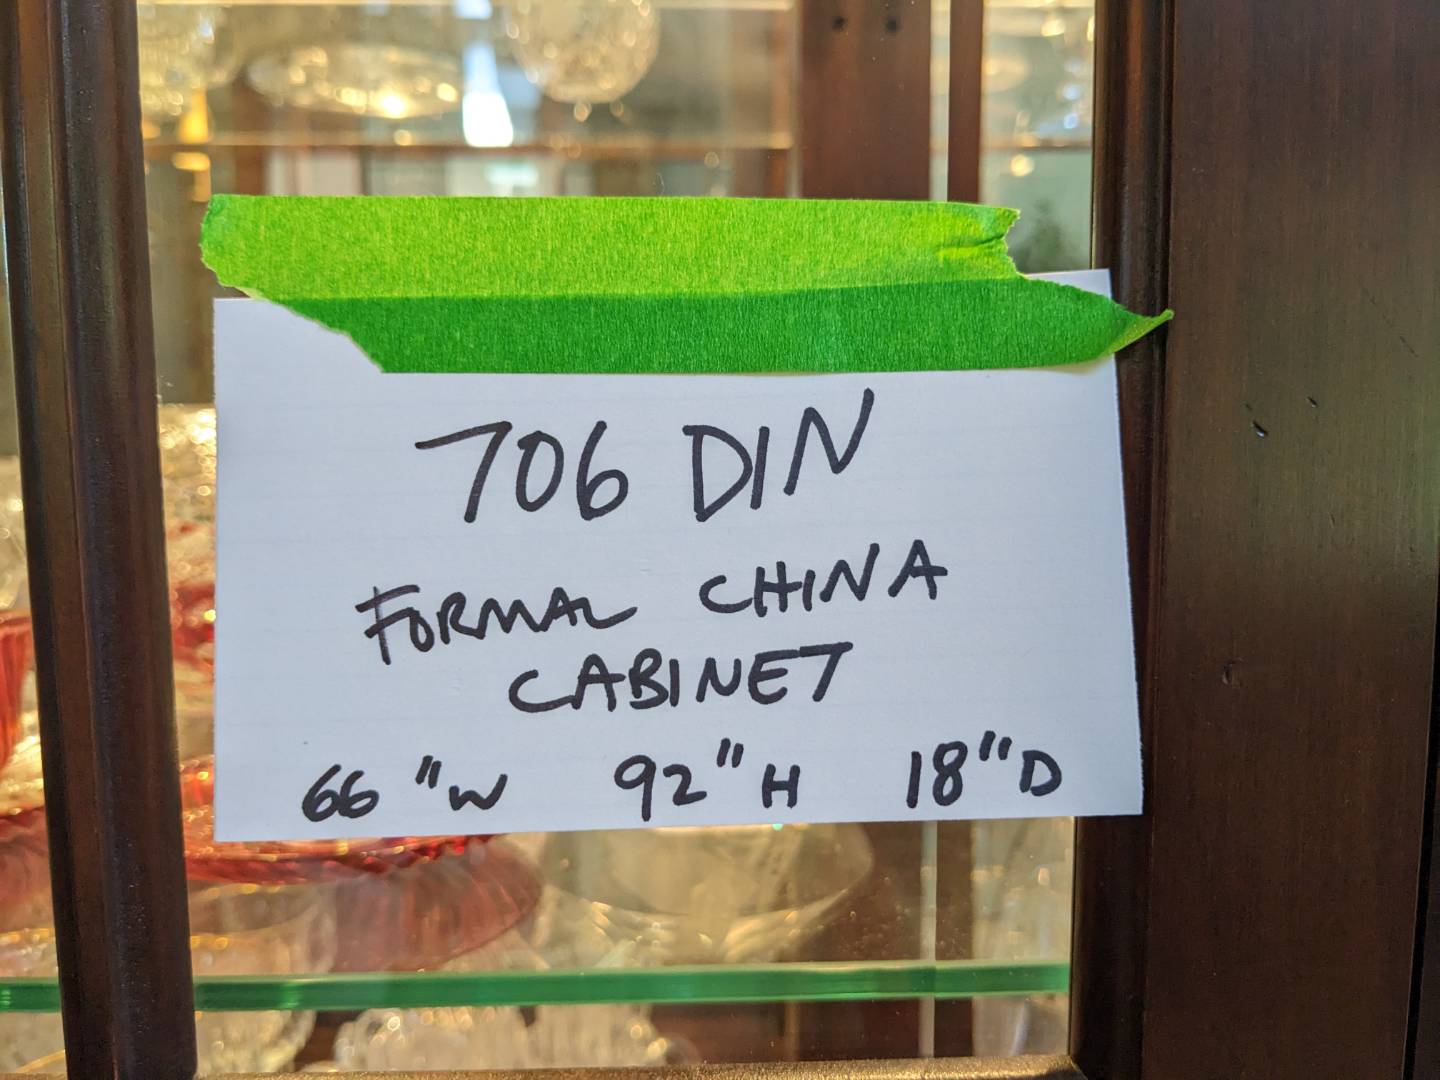 706 DIN
FORMAL CHINA
CABINET
66"W 92"H 18"D